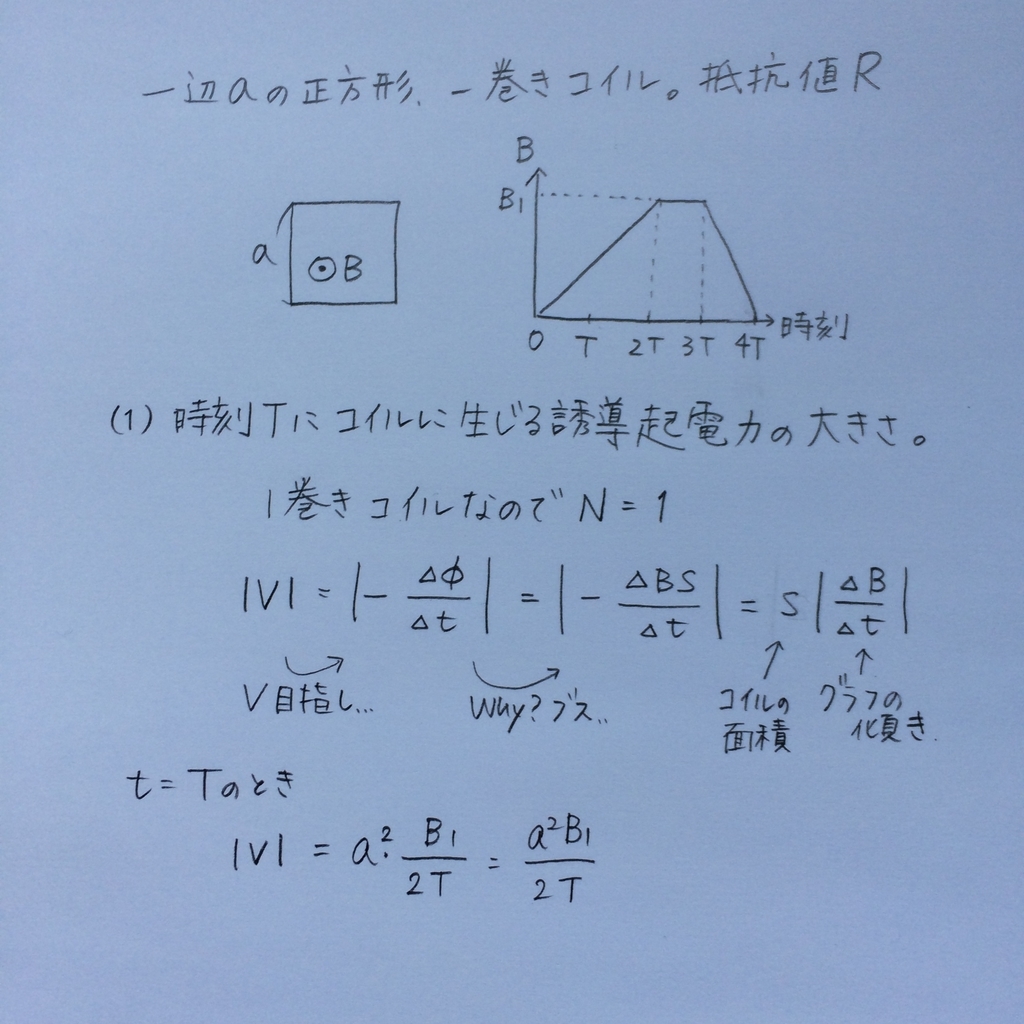 一辺aの正方形、一巻きコイル。抵抗値R
B
B₁
a
⊙B
0 T 2T 3T 4T 時刻
(1) 時刻Tにコイルに生じる誘導起電力の大きさ。
1巻きコイルなので N = 1
|V| = |- Δφ/Δt| = |- ΔBS/Δt| = S|ΔB/Δt|
V目指し… Why?ブス.. コイルの面積 グラフの傾き.
t = Tのとき
|V| = a²・B₁/2T = a²B₁/2T